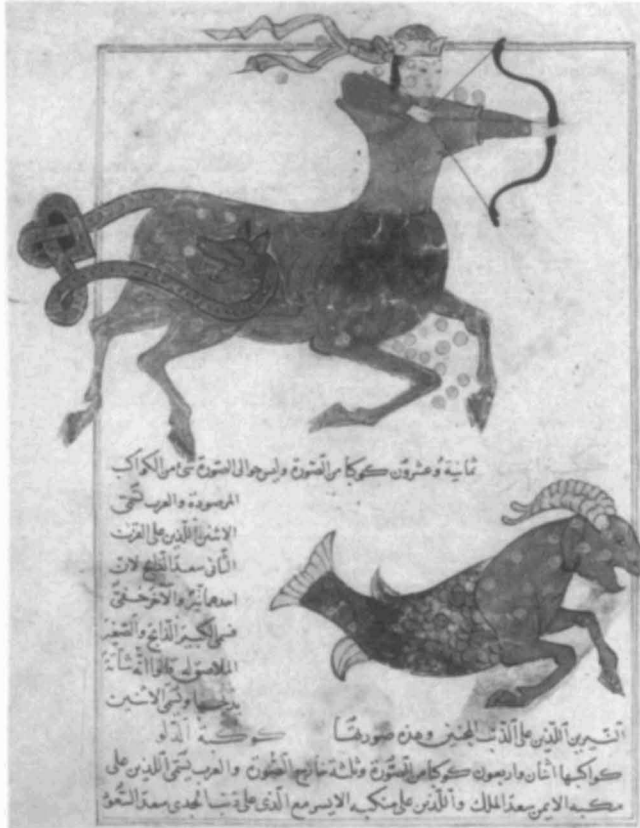 ثمانية وعشرون كوكبا من الصورة وليس حوالى الصورة شئ من الكواكب
المرصودة والعرب تسمى
الاثنين اللذين على القرن
الثانى سعد الذابح لان
احدهما نير والاخر خفى
فسمى الكبير الذابح والصغير
الملاصق له قالوا انه شاته
يذبحها وتسمى الاثنين
النيرين اللذين على الذنب المحبين وهذه صورتها كوكبة الدلو
كواكبها اثنان واربعون كوكبا من الصورة وثلثة خارج الصورة والعرب يسمى اللذين على
منكبه الايمن سعد الملك واللذين على منكبه الايسر مع الذى على ذنب الجدى سعد السعود